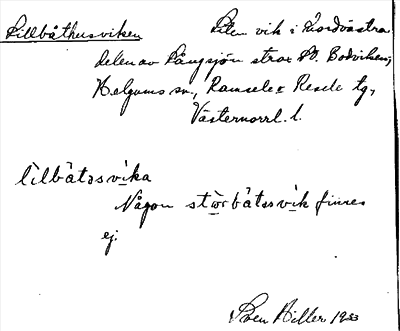 Lillbåthusviken Liten vik i nordvästra
delen av Långsjön strax N. Bodviken,
Helgums sn., Ramsele & Resele tg,
Västernorrl. l.
lìlbåtəsvika
Någon stòrbåtəsvìk finnes
ej.
Sven Hiller 1933